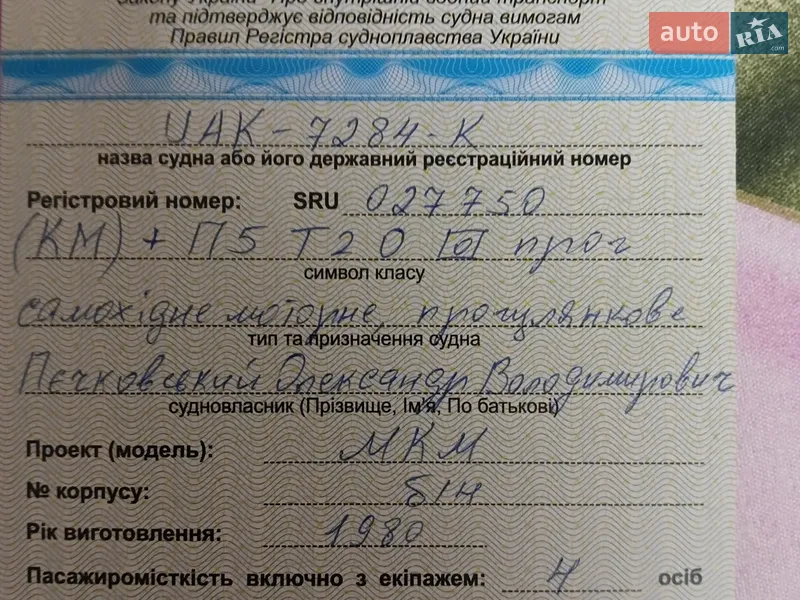 Закону України "Про внутрішній водний транспорт"
та підтверджує відповідність судна вимогам
Правил Регістра судноплавства України
auto RIA.com
UAK-7284-K
назва судна або його державний реєстраційний номер
Регістровий номер: SRU 027750
(КМ) + П5 Т20 прог
символ класу
самохідне моторне, прогулянкове
тип та призначення судна
Пєчковський Олександр Володимирович
судновласник (Прізвище, Ім'я, По батькові)
Проект (модель): МКМ
№ корпусу: б/н
Рік виготовлення: 1980
Пасажиромісткість включно з екіпажем: 4 осіб